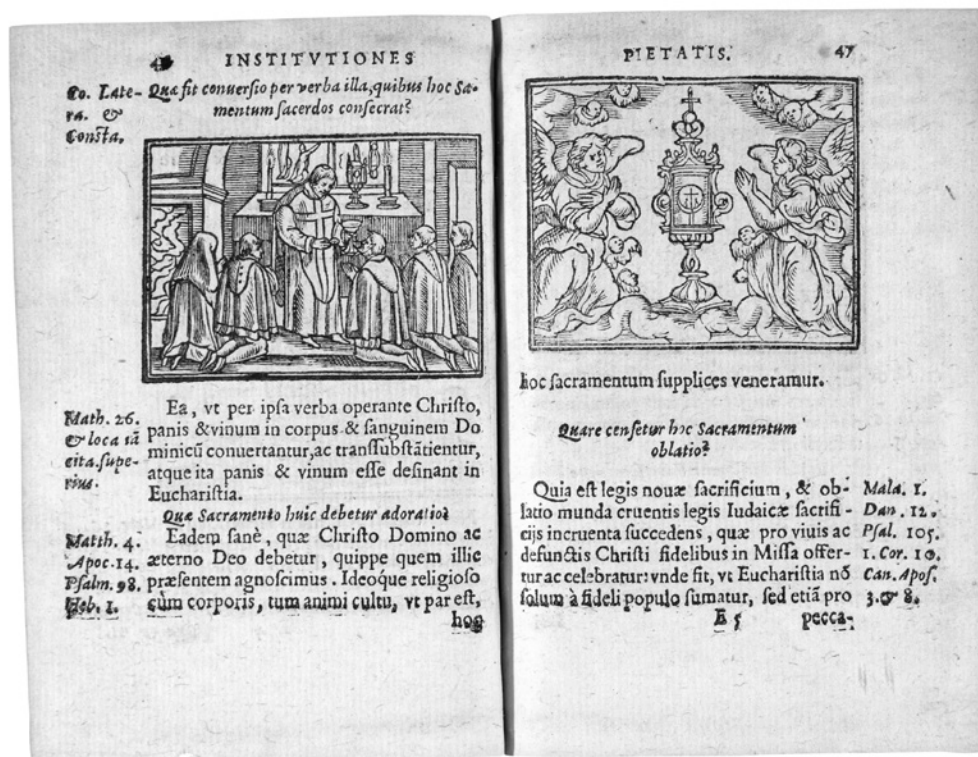 INSTITVTIONES
Co. Late-
ra. &
Consta,
Quæ fit conuersio per verba illa, quibus hoc Sa-
mentum sacerdos consecrat?
Math. 26.
& loca iã
cita. supe-
rius.
Ea, vt per ipsa verba operante Christo,
panis & vinum in corpus & sanguinem Do
minicũ conuertantur, ac transsubstãtientur,
atque ita panis & vinum esse desinant in
Eucharistia.
Quæ Sacramento huic debetur adoratio?
Matth. 4.
Apoc. 14.
Psalm. 98.
Heb. 1.
Eadem sanè, quæ Christo Domino ac
æterno Deo debetur, quippe quem illic
præsentem agnoscimus. Ideoque religioso
cùm corporis, tum animi cultu, vt par est,
hoc
PIETATIS. 47
hoc sacramentum supplices veneramur.
Quare censetur hoc Sacramentum
oblatio?
Quia est legis nouæ sacrificium, & ob-
latio munda cruentis legis Iudaicæ sacrifi-
cijs incruenta succedens, quæ pro viuis ac
defunctis Christi fidelibus in Missa offer-
tur ac celebratur: vnde fit, vt Eucharistia nõ
solum à fideli populo sumatur, sed etiã pro
Mala. 1.
Dan. 12.
Psal. 105.
1. Cor. 10.
Can. Apos.
3. & 8.
E 5 pecca-